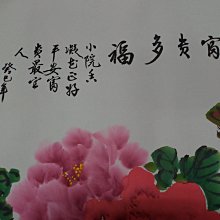 富贵多福
小院春
深花正好
平安富
贵最宜
人
癸巳年